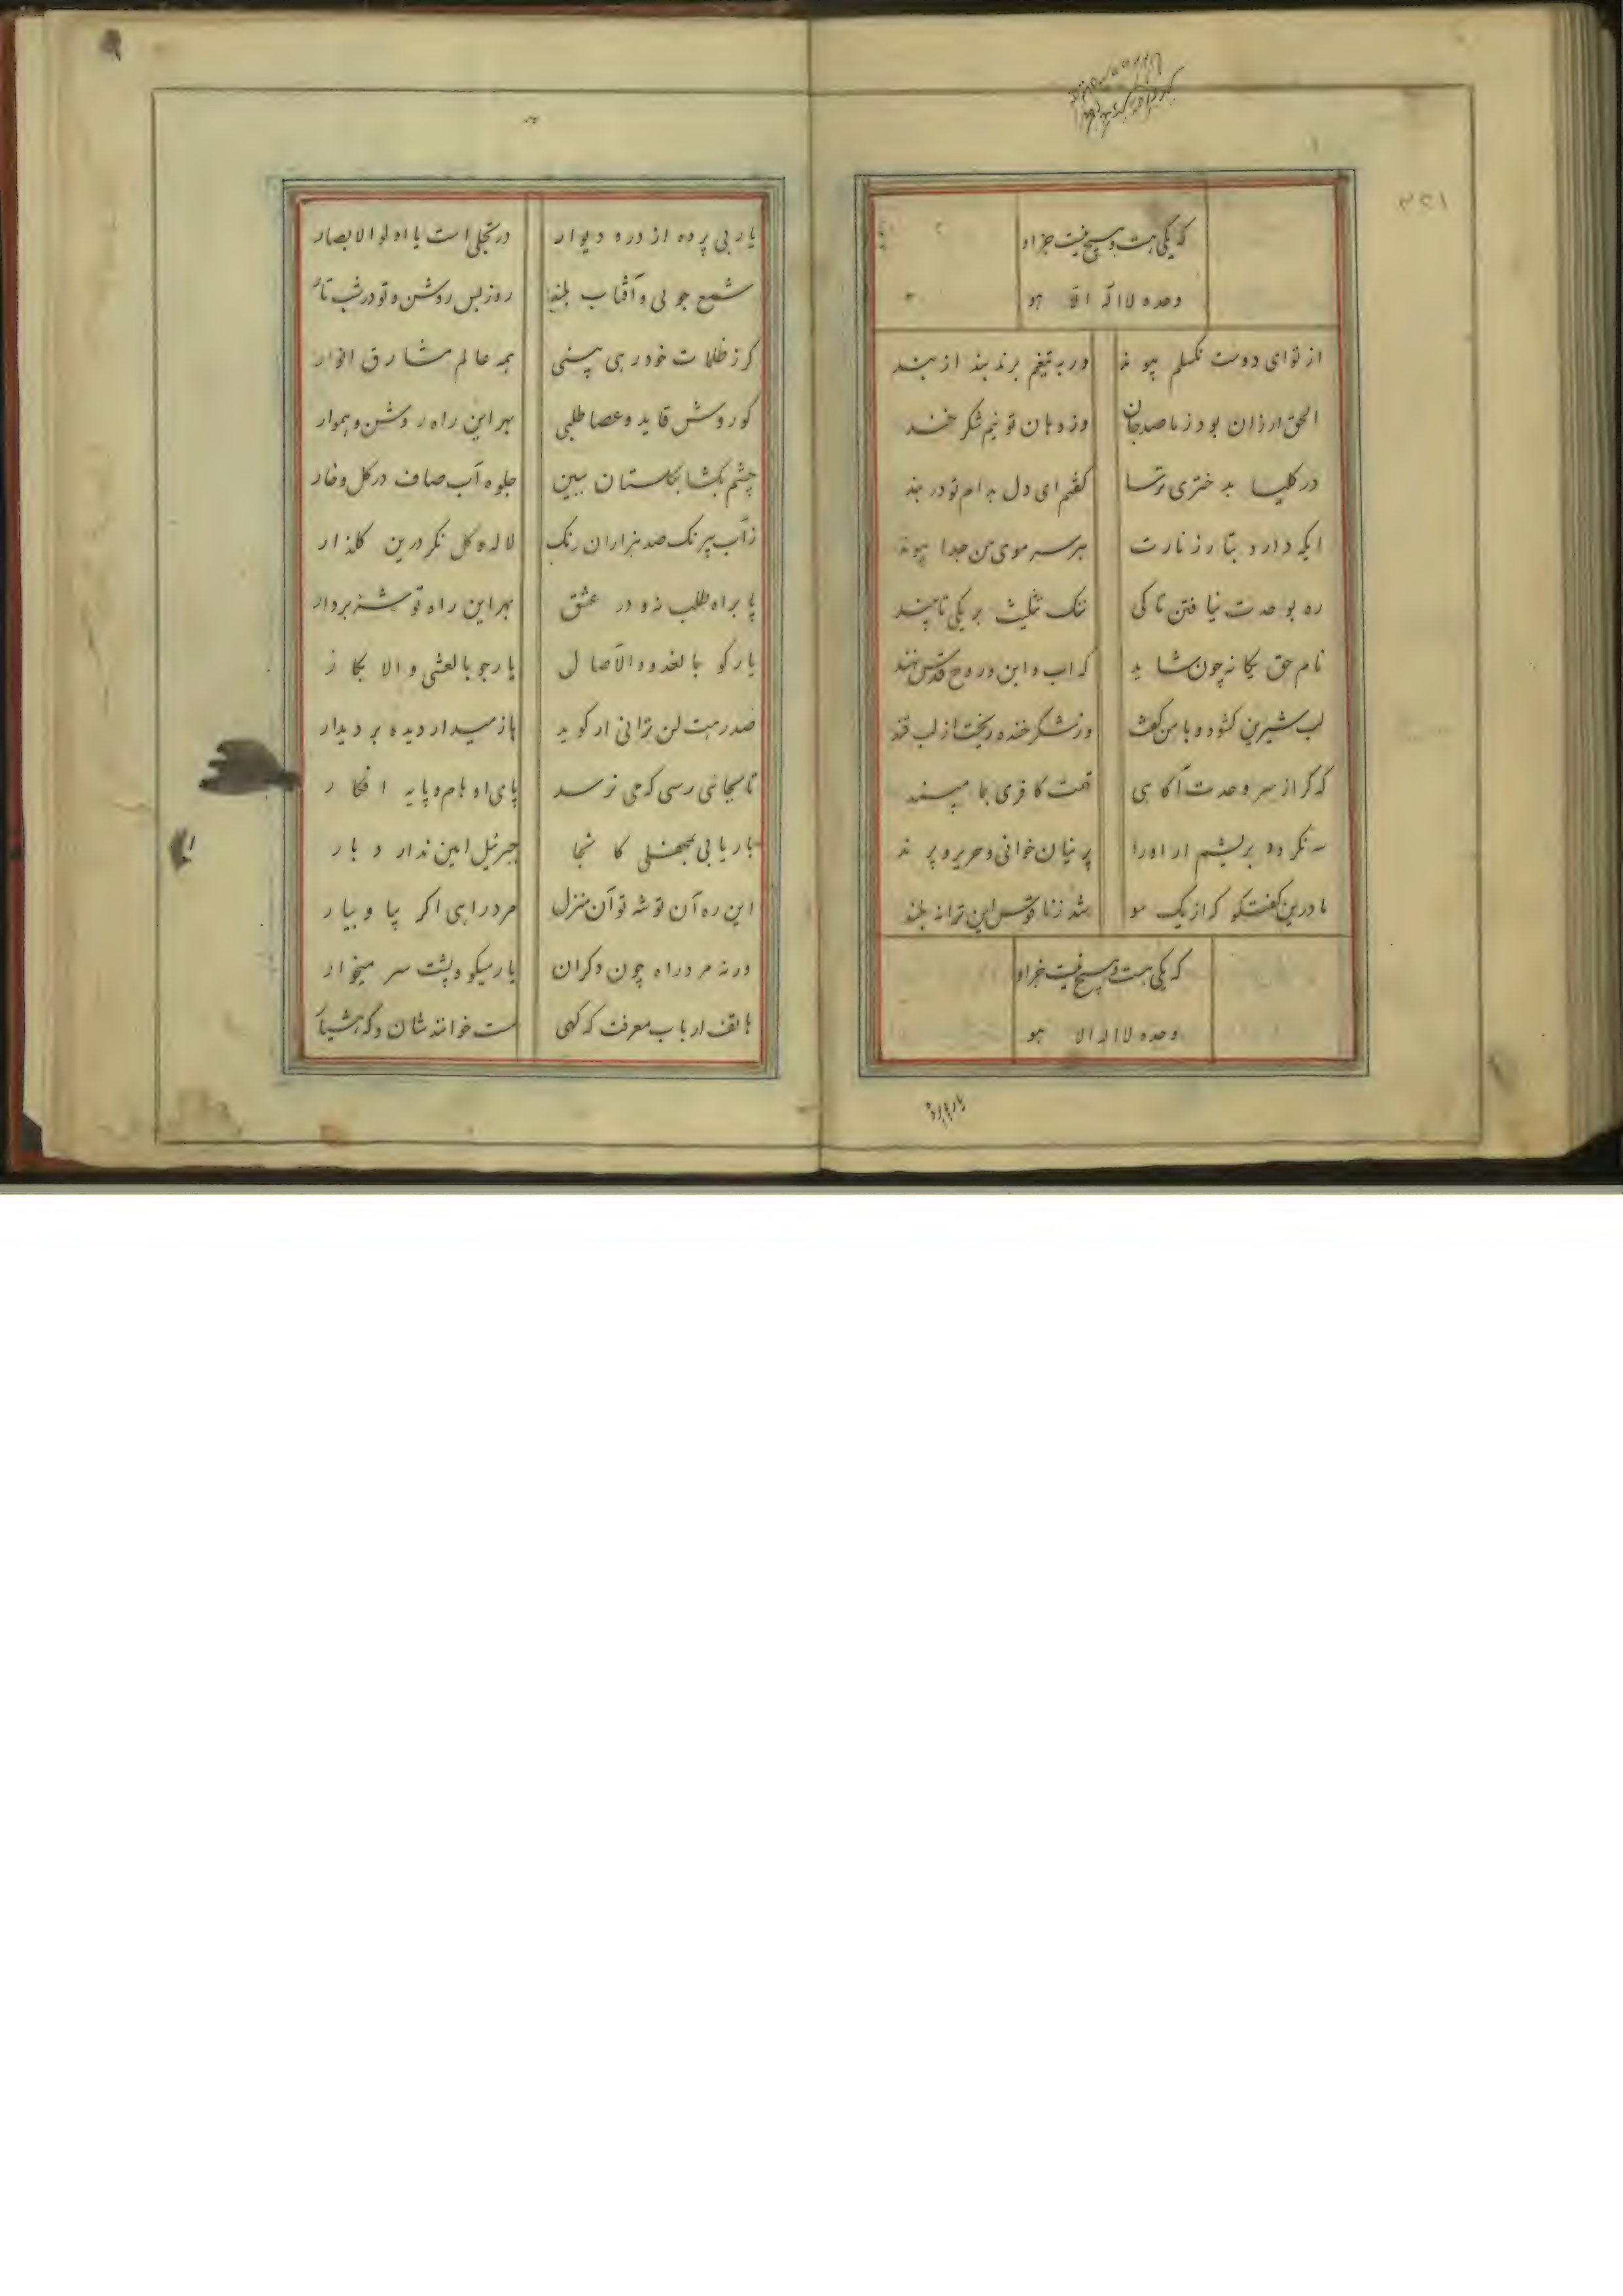 که یکی هست و هیچ نیست جز او
وحده لا اله الا هو
از تو ای دوست نکسلم پیوند ور به تیغم برند بند از بند
الحق ارزان بود ز ما صد جان وز دهان تو نیم شکر خند
در کلیسا به دختری ترسا کفتم ای دل بدام تو در بند
ایکه دارد بتار زنارت هر سر موی من جدا پیوند
ره بوحدت نیافتن تا کی ننک تثلیث بر یکی تا چند
نام حق یکانه چون شاید که اب و ابن و روح قدس نهند
لب شیرین کشود و با من کفت وز شکر خنده ریخت از لب قند
که کر از سر وحدت آکاهی تهمت کافری بما مپسند
سه نکردد بریشم ار او را پرنیان خوانی و حریر و پرند
ما درین کفتکو که از یک سو شد ز ناقوس این ترانه بلند
که یکی هست و هیچ نیست جز او
وحده لا اله الا هو
یار بی پرده از در و دیوار در تجلی است یا اولو الابصار
شمع جوئی و آفتاب بلند روز بس روشن و تو در شب تار
کر ز ظلمات خود رهی بینی همه عالم مشارق انوار
کوروش قاید و عصا طلبی بهر این راه روشن و هموار
چشم بکشا بکلستان ببین جلوه آب صاف در کل و خار
ز آب بیرنک صد هزاران رنک لاله و کل نکر درین کلذار
پا براه طلب نه و در عشق بهر این راه توشه بردار
یار کو بالغدو و الآصال یار جو بالعشی و الابکار
صد رهت لن ترانی ار کوید باز میدار دیده بر دیدار
تا بجائی رسی که می نرسد پای اوهام و پایه افکار
بار یابی بمحفلی کانجا جبرئیل امین ندارد بار
این ره آن توشه تو آن منزل مرد راهی اکر بیا و بیار
ور نه مرد راه چون دکران یار میکو و پشت سر میخوار
هاتف ارباب معرفت که کهی مست خوانند شان و که هشیار